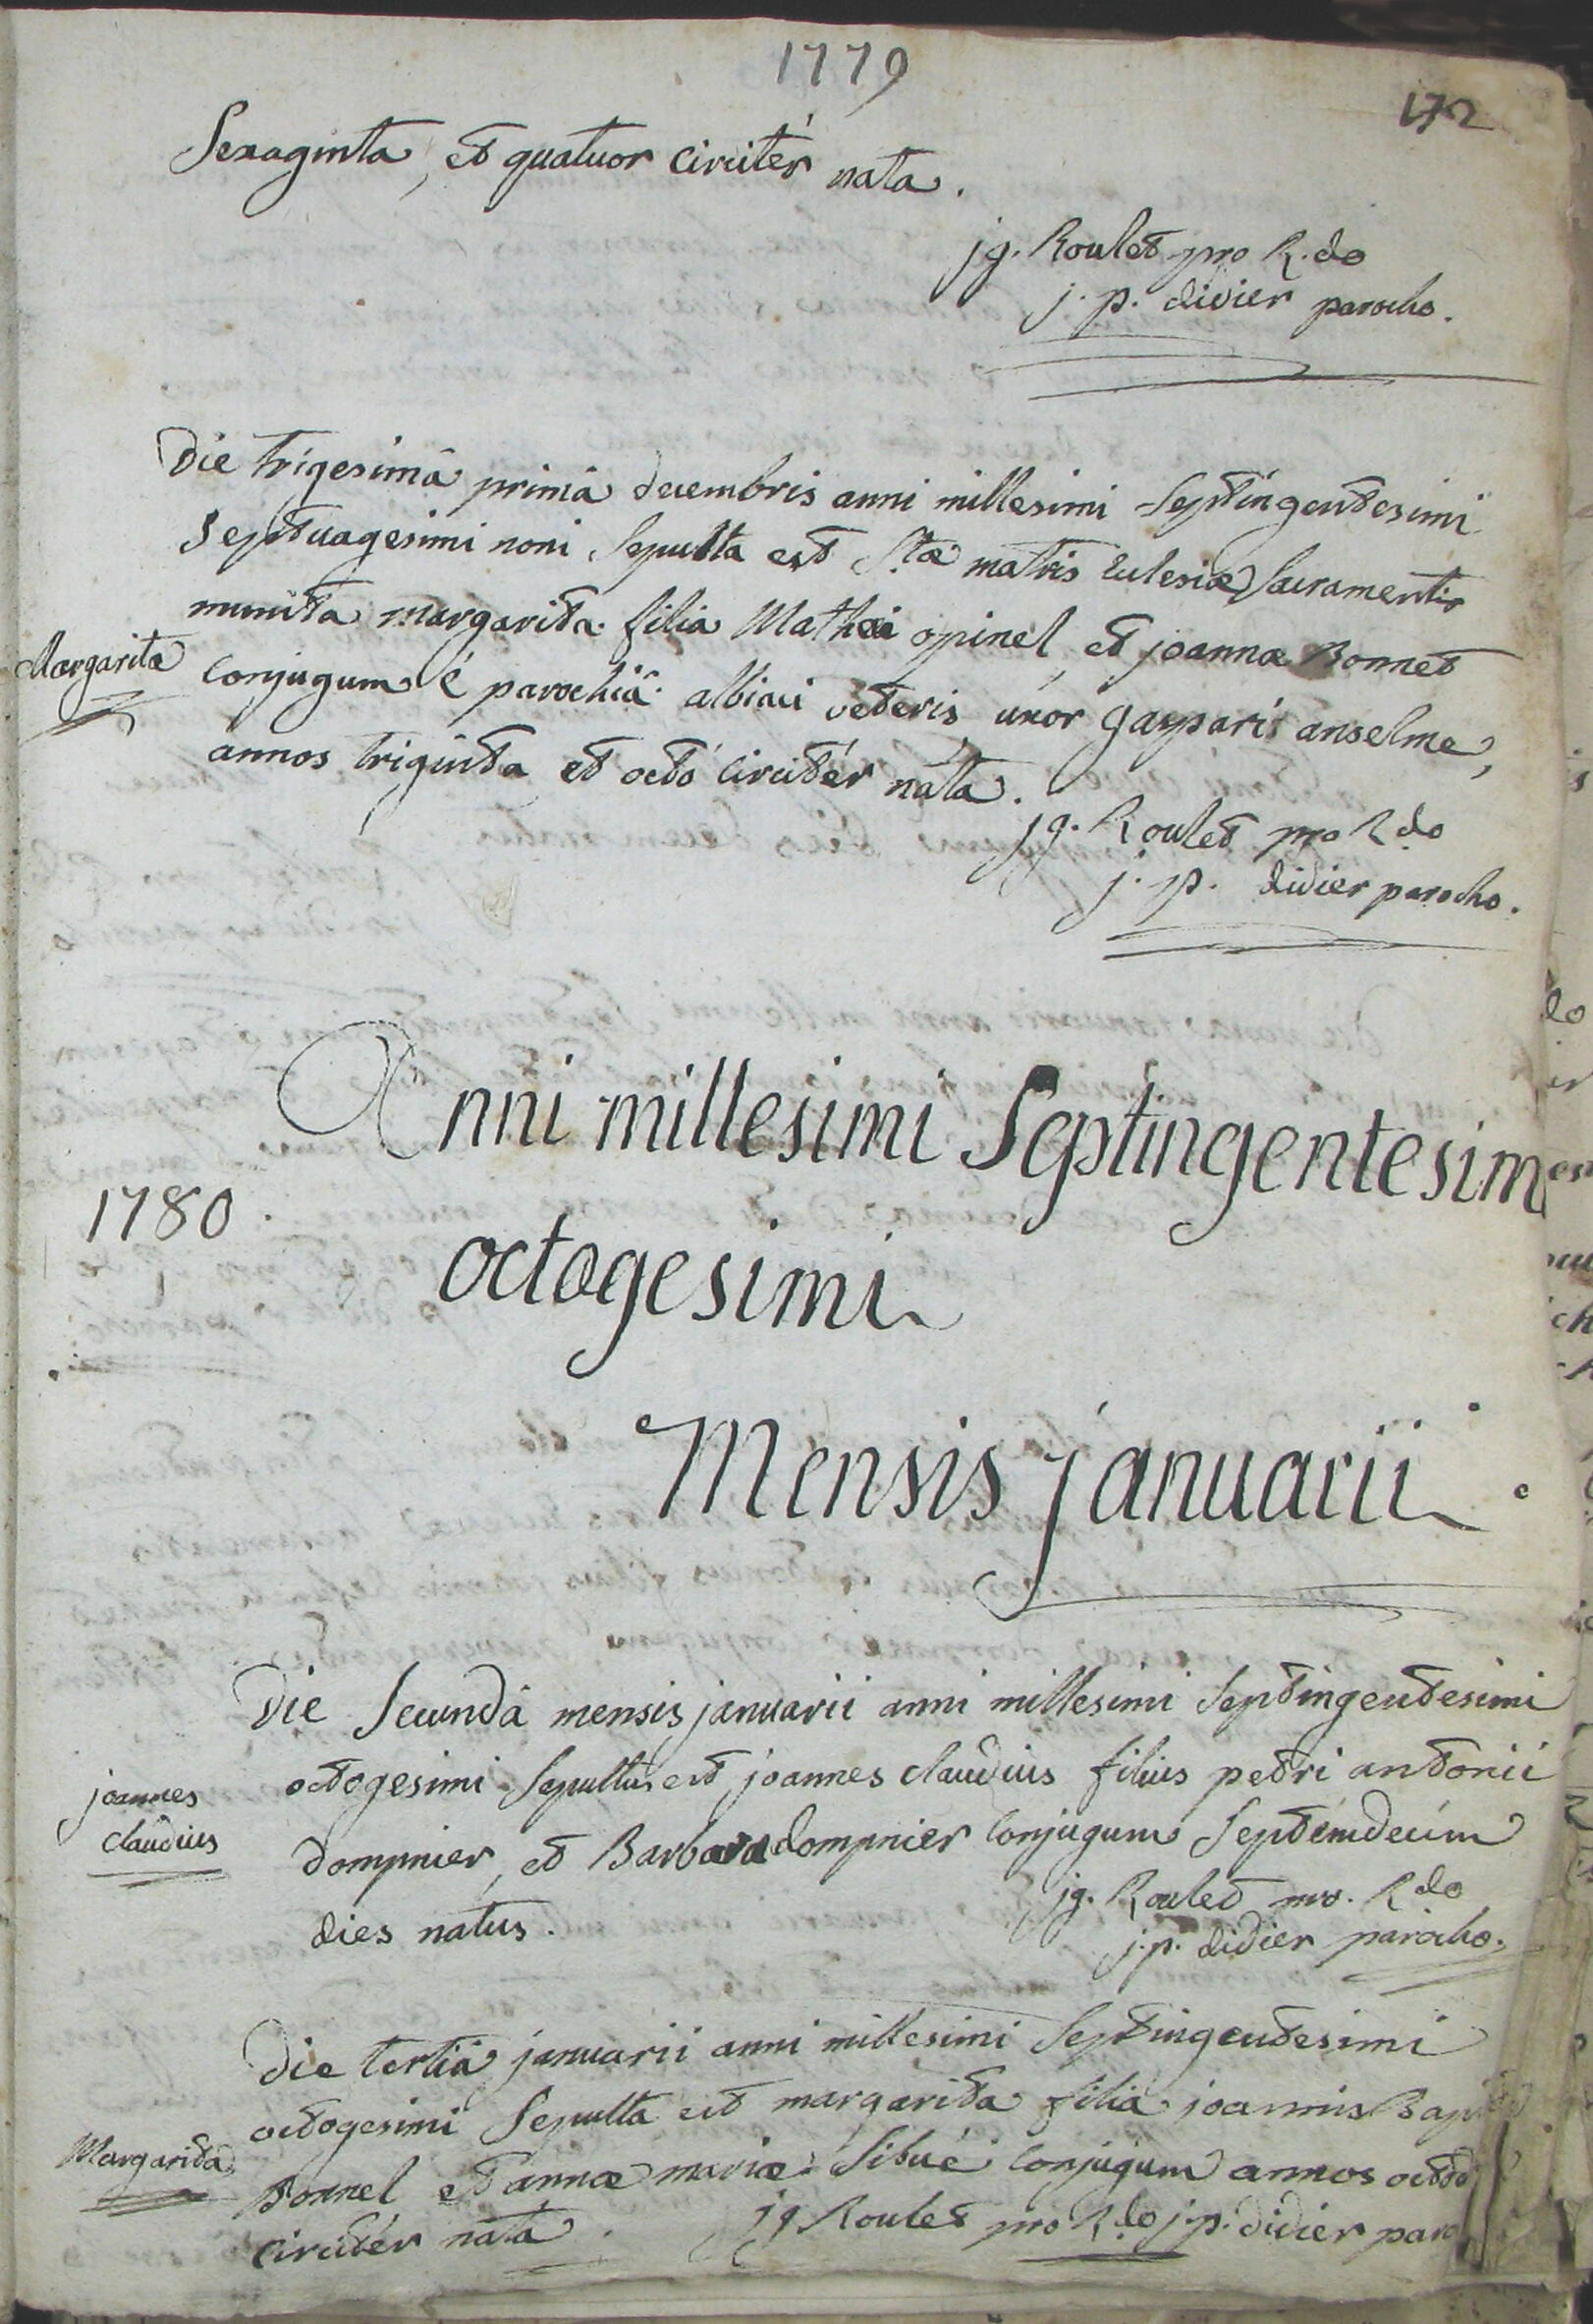 1779
172
Sexaginta, et quatuor circitér nata.
jg. Roulet pro R.do
j. p. didier parocho.
Die trigesimâ primâ decembris anni millesimi Septingentesimi
Septuagesimi noni Sepulta est S.tæ matris Eclesiæ Sacramentis
munita margarita filia Mathei opinel, et joannæ Bonnet
Margarita
conjugum é parochiâ albiaci veteris, uxor gasparis anselme,
annos triginta et octo circitér nata.
jg. Roulet pro R.do
j. p. didier parocho.
Anni millesimi Septingentesim
1780.
octogesimi
Mensis januarii.
Die Secundâ mensis januarii anni millesimi Septingentesimi
octogesimi Sepultus est joannes claudius filius petri antonii
joannes
claudius
dompnier, et Barbara dompnier conjugum Septemdecim
dies natus.
jg. Roulet pro. R.do
j. p. didier parocho.
Die tertiâ januarii anni millesimi Septingentesimi
octogesimi Sepulta est margarita filia joannis Bap
Margarita
Bonnel et annæ mariæ Sibué conjugum annos octo
circitér nata.
jg. Roulet pro R.do j. p. didier paro